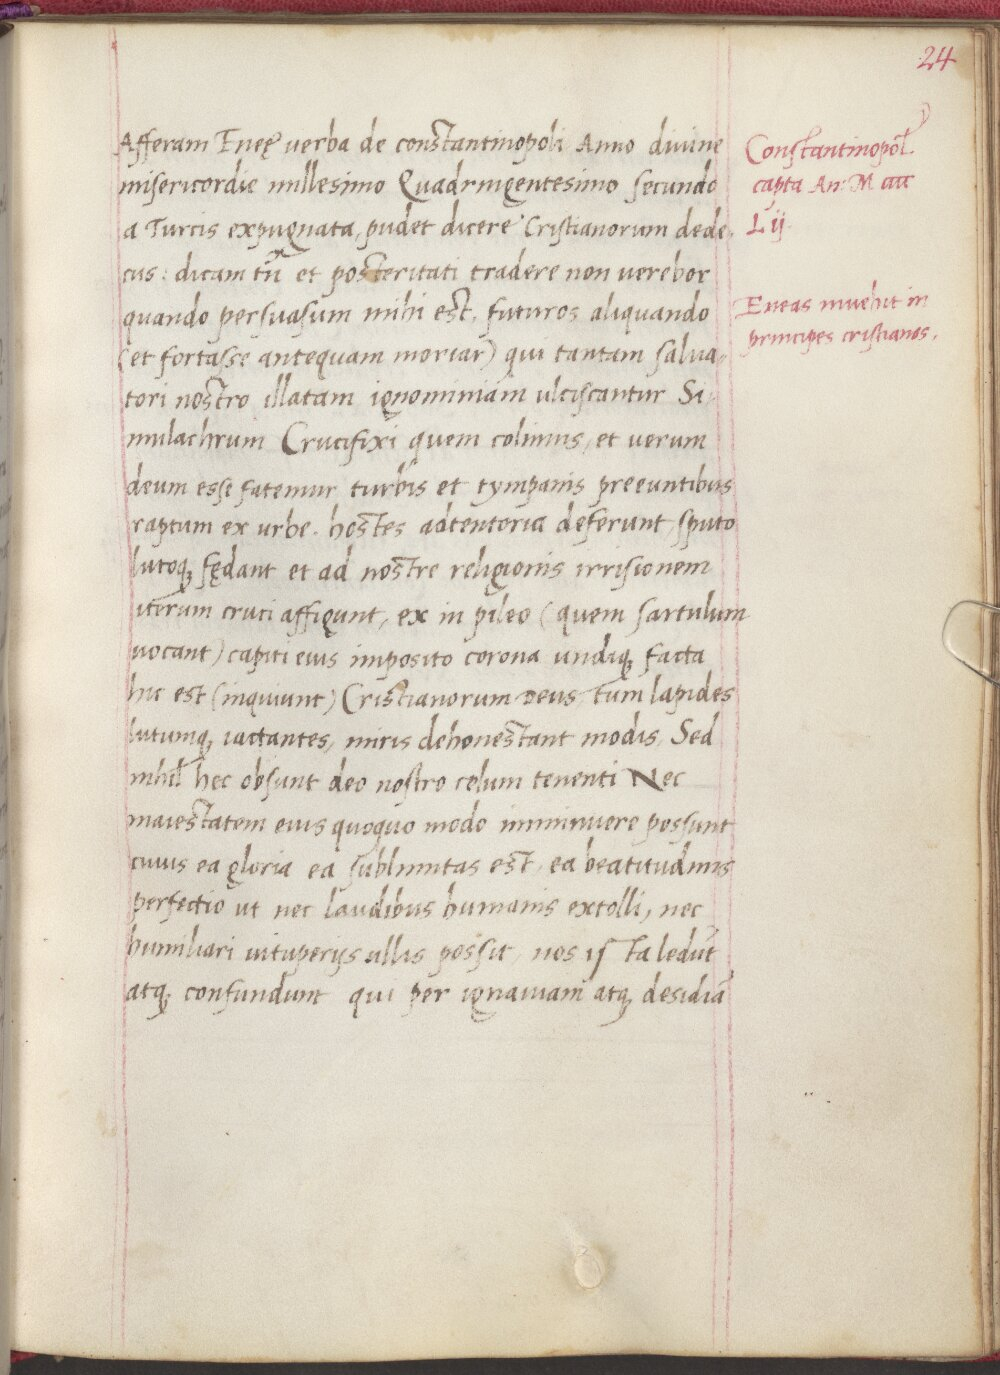 24
Afferam Eneę verba de constantinopoli Anno divine
misericordie millesimo Quadringentesimo secundo
a Turcis expugnata, pudet dicere Cristianorum dede,
cus: dicam tñ et posteritati tradere non verebor
quando persuasum mihi est, futuros aliquando
(et fortasse antequam moriar) qui tantam salva,
tori nostro illatam ignominiam ulciscantur Si,
mulachrum Crucifixi quem colimus, et verum
deum esse fatemur turbis et tympanis preeuntibus
raptum ex urbe. hostes adtentoria deferunt, sputo
lutoq, fędant et ad nostre religionis irrisionem
iterum cruci affigunt, ex in pileo (quem sartulum
vocant) capiti eius imposito corona undiq, facta
hic est (inquiunt) Cristianorum Deus, Tum lapides
lutumq, iactantes, miris dehonestant modis, Sed
nihil hec obsunt deo nostro celum tenenti Nec
maiestatem eius quoquo modo imminuere possunt
cuius ea gloria ea sublimitas est, ea beatitudinis
perfectio ut nec laudibus humanis extolli, nec
humiliari vituperijs ullis possit, nos isTa ledūt
atq, confundunt qui per ignaviam atq, desidiā
Constantinopol
capta An: M cccc
Lij.
Eneas invehit in
principes cristianos.